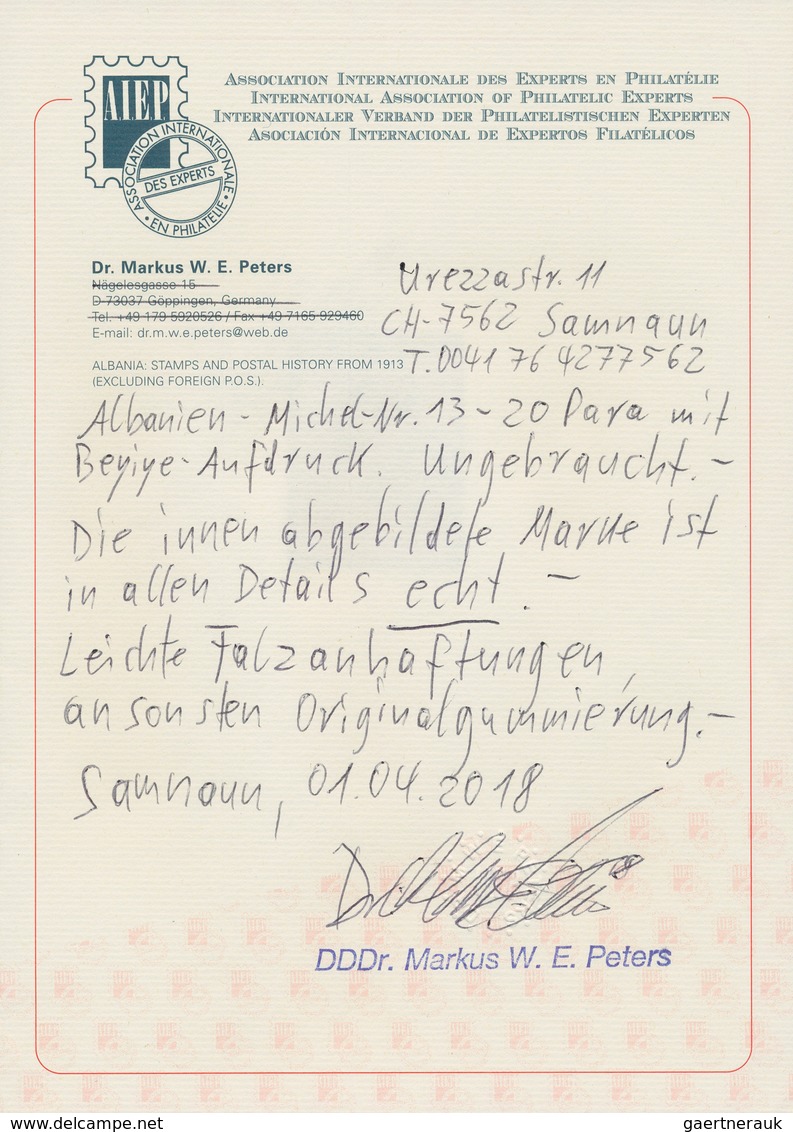 AIEP
ASSOCIATION INTERNATIONALE DES EXPERTS EN PHILATÉLIE
INTERNATIONAL ASSOCIATION OF PHILATELIC EXPERTS
INTERNATIONALER VERBAND DER PHILATELISTISCHEN EXPERTEN
ASOCIACIÓN INTERNACIONAL DE EXPERTOS FILATÉLICOS
ASSOCIATION INTERNATIONALE
DES EXPERTS
• EN PHILATELIE •
Dr. Markus W. E. Peters
Nägelesgasse 15
D-73037 Göppingen, Germany
Tel. +49 179 5920526 / Fax +49 7165 929460
E-mail: dr.m.w.e.peters@web.de
Urezzastr. 11
CH-7562 Samnaun
T. 0041 76 4277562
ALBANIA: STAMPS AND POSTAL HISTORY FROM 1913
(EXCLUDING FOREIGN P.O.S.).
Albanien - Michel-Nr. 13 - 20 Para mit
Beyiye-Aufdruck. Ungebraucht. -
Die innen abgebildete Marke ist
in allen Details echt. -
Leichte Falzanhaftungen,
ansonsten Originalgummierung. -
Samnaun, 01.04.2018
DDDr. Markus W. E. Peters
www.delcampe.net
gaertnerauk